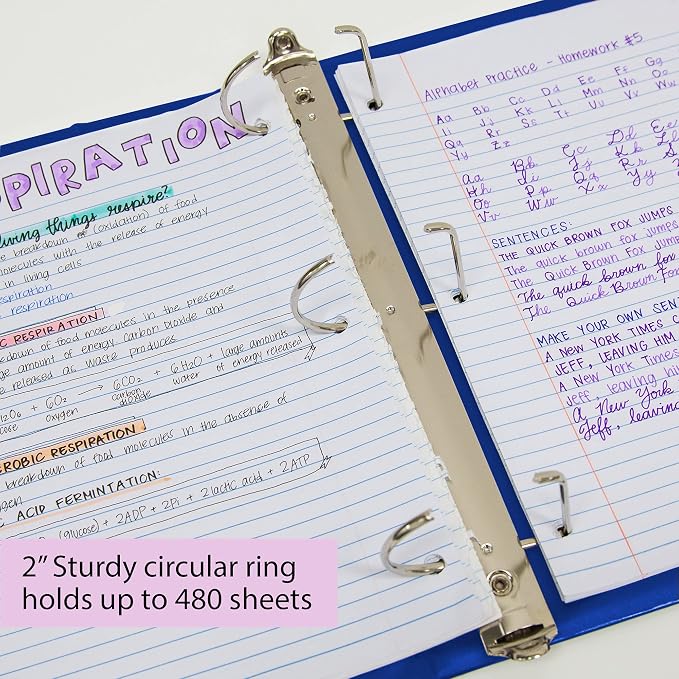 SPIRATION
living things respire?
e breakdown of (oxidation) of food
molecules with the release of energy
in living cells
respiration
respiration
C RESPIRATION
down of food molecules in the presence
large amount of energy. Carbon Dioxide and
e released as waste products
H12O6 + 6O2 → 6CO2 + 6H2O + large amounts
cose oxygen carbon dioxide water of energy released
EROBIC RESPIRATION
breakdown of food molecules in the absence of
gen
C ACID FERMINTATION:
(glucose) + 2ADP + 2Pi + 2 lactic acid + 2ATP
Alphabet Practice - Homework #5
Aa Bb Cc Dd Ee Ff Gg
Ii Jj Kk Ll Mm Nn Oo
Qq Rr Ss Tt Uu Vv
Yy Zz
Aa Bb Cc Dd Ee
Hh Ii Jj Kk Ll
Oo Pp Qq Rr Ss
Vv Ww Xx Yy
SENTENCES:
THE QUICK BROWN FOX JUMPS
The quick brown fox jumps
The Quick Brown Fox Jumps
The quick brown fox
The Quick Brown Fox
MAKE YOUR OWN SENT
A NEW YORK TIMES C
JEFF, LEAVING HIM
A New York Times
Jeff, leaving hi
A New York
Jeff, leavin
2” Sturdy circular ring
holds up to 480 sheets